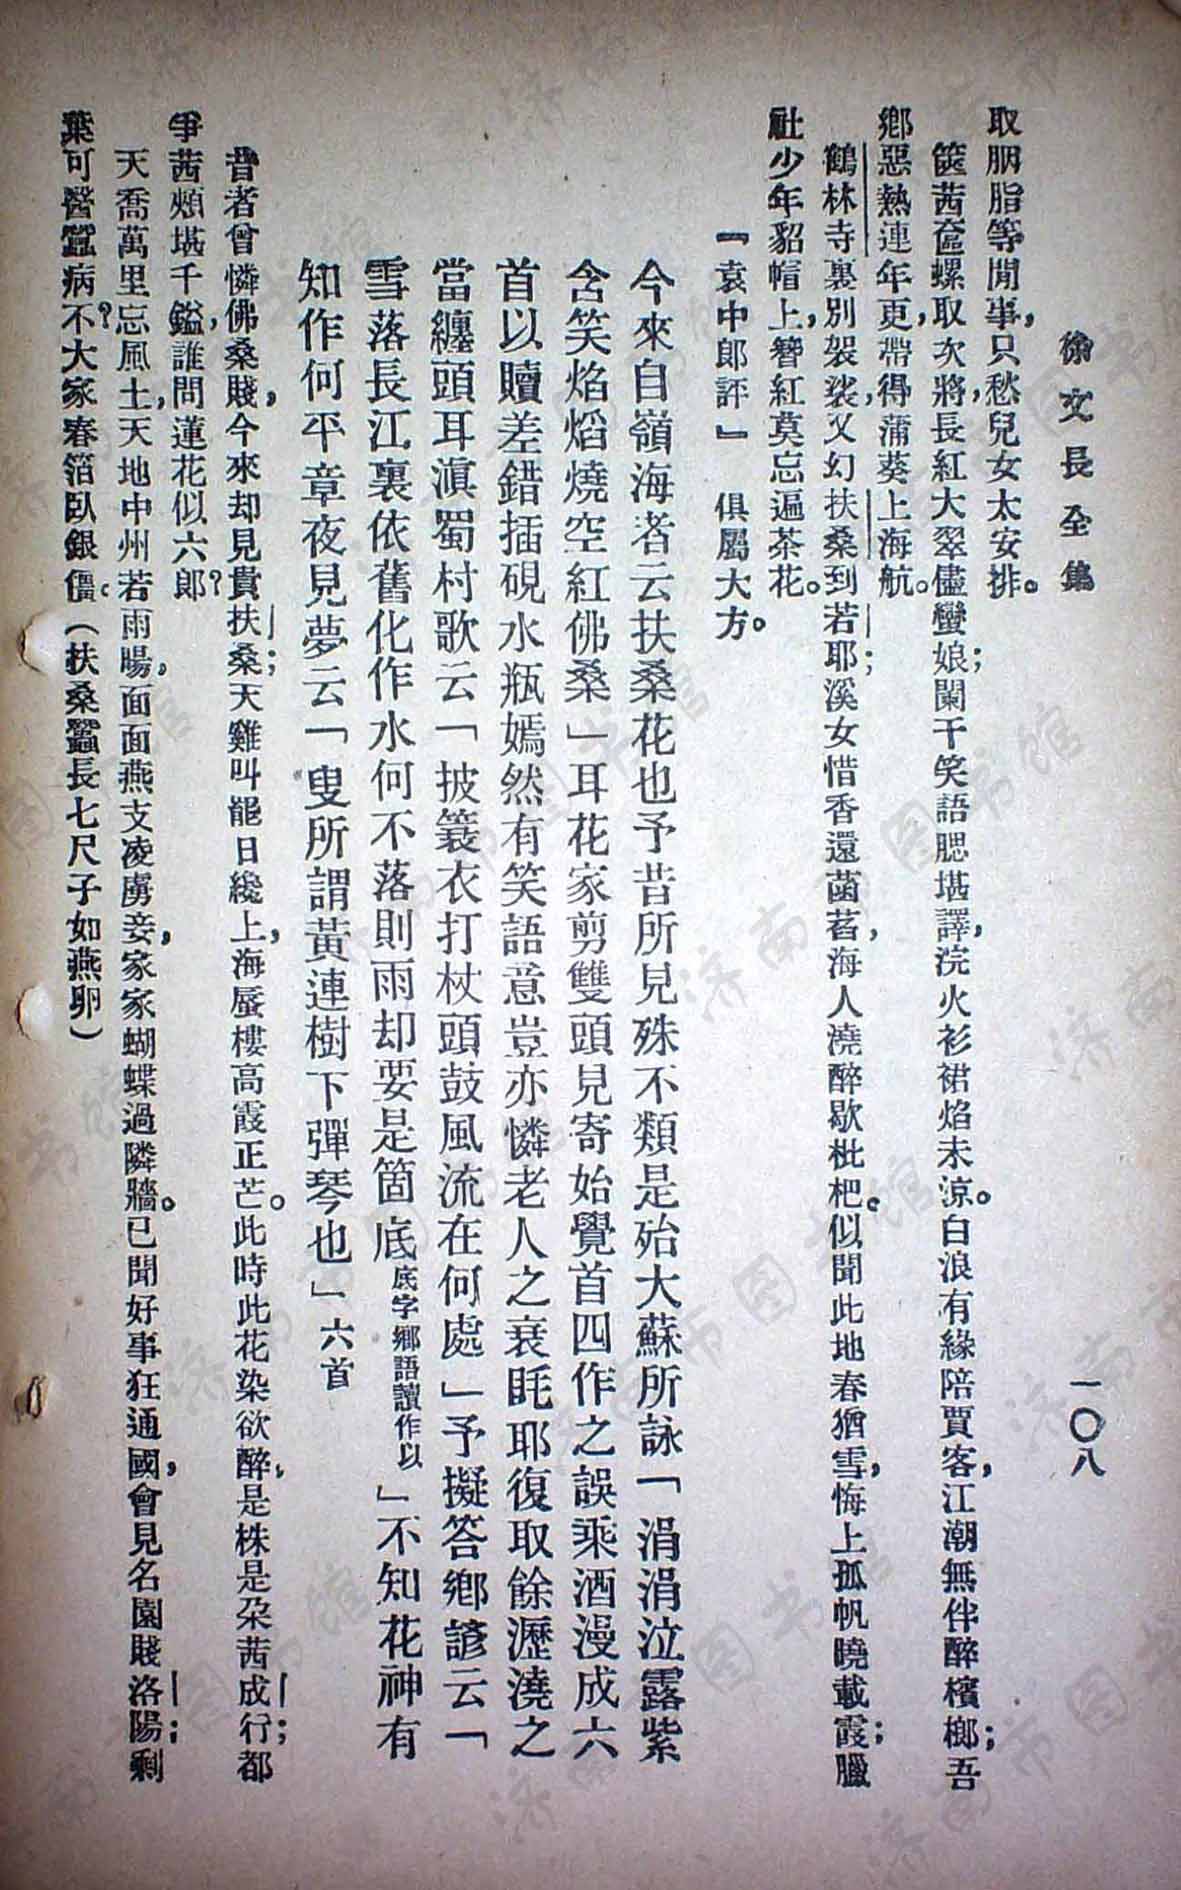 徐文長全集
一〇八
取胭脂等閒事，只愁兒女太安排。
篋茜奩螺取次將，長紅大翠儘蠻娘；闌干笑語腮堪譯，浣火衫裙焰未涼。白浪有緣陪賈客，江潮無伴醉檳榔；吾
鄉惡熱連年更，帶得蒲葵上海航。
鶴林寺裏別袈裟，又幻扶桑到若耶；溪女惜香還菡萏，海人澆醉歇枇杷。似聞此地春猶雪，悔上孤帆曉載霞；臘
社少年貂帽上，簪紅莫忘遍茶花。
『袁中郎評』　俱屬大方。
今來自嶺海者云扶桑花也予昔所見殊不類是殆大蘇所詠「涓涓泣露紫
含笑焰熖燒空紅佛桑」耳花家剪雙頭見寄始覺首四作之誤乘酒漫成六
首以贖差錯插硯水瓶嫣然有笑語意豈亦憐老人之衰眊耶復取餘瀝澆之
當纏頭耳滇蜀村歌云「披簑衣打杖頭鼓風流在何處」予擬答鄉諺云「
雪落長江裏依舊化作水何不落則雨却要是箇底底字鄉語讀作以」不知花神有
知作何平章夜見夢云「叟所謂黃連樹下彈琴也」六首
昔者曾憐佛桑賤，今來却見貴扶桑；天雞叫罷日纔上，海蜃樓高霞正芒。此時此花染欲醉，是株是朶茜成行；都
爭茜頰堪千鎰，誰問蓮花似六郎？
天喬萬里忘風土，天地中州若雨暘，面面燕支凌虜妾，家家蝴蝶過隣牆。已聞好事狂通國，會見名園賤洛陽；剩
葉可醫蠶病不？大家春箔臥銀僵。（扶桑蠶長七尺子如燕卵）